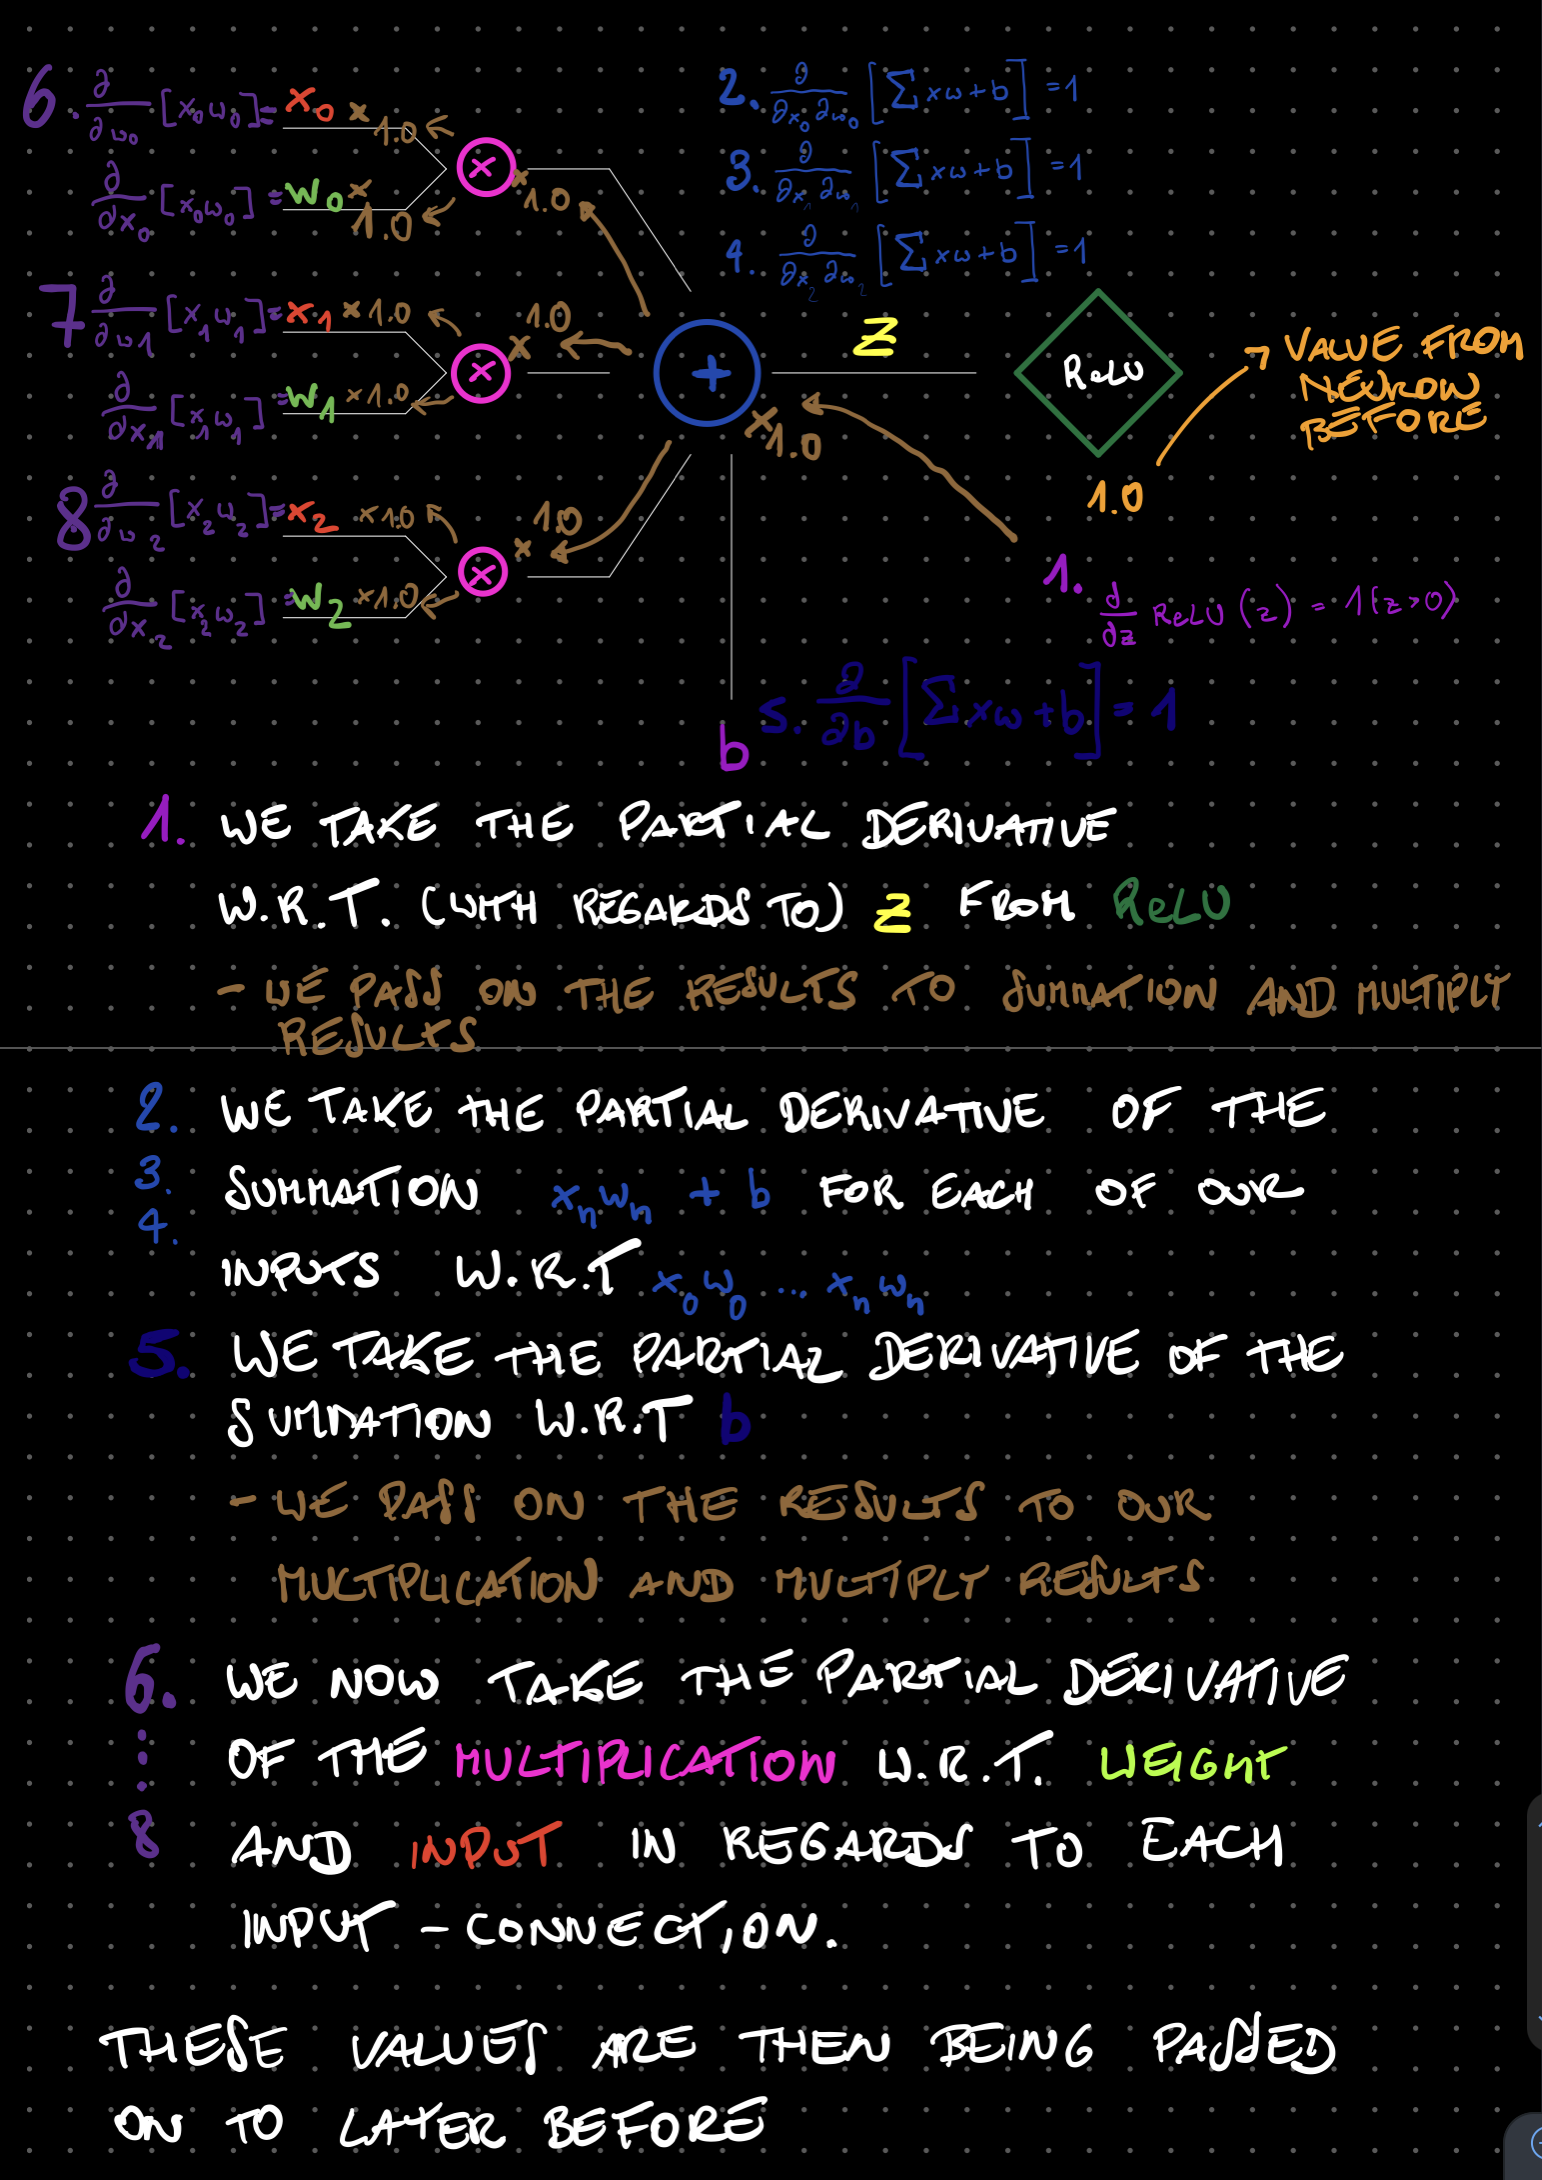 6. ∂/∂w₀ [x₀w₀] = x₀ × 1.0
∂/∂x₀ [x₀w₀] = w₀ × 1.0
×
× 1.0
2. ∂/∂x₀∂w₀ [∑ xw+b] = 1
3. ∂/∂x₁∂w₁ [∑ xw+b] = 1
4. ∂/∂x₂∂w₂ [∑ xw+b] = 1
7 ∂/∂w₁ [x₁w₁] = x₁ × 1.0
∂/∂x₁ [x₁w₁] = w₁ × 1.0
×
× 1.0
+
Z
× 1.0
ReLU
1.0
VALUE FROM
NEURON
BEFORE
8 ∂/∂w₂ [x₂w₂] = x₂ × 1.0
∂/∂x₂ [x₂w₂] = w₂ × 1.0
×
× 1.0
1. d/dz ReLU (z) = 1(z>0)
b
5. ∂/∂b [∑ xw+b] = 1
1. WE TAKE THE PARTIAL DERIVATIVE
W.R.T. (WITH REGARDS TO) Z FROM ReLU
- WE PASS ON THE RESULTS TO SUMMATION AND MULTIPLY
RESULTS
2. WE TAKE THE PARTIAL DERIVATIVE OF THE
3. SUMMATION xₙwₙ + b FOR EACH OF OUR
4.
INPUTS W.R.T x₀w₀ ... xₙwₙ
5. WE TAKE THE PARTIAL DERIVATIVE OF THE
SUMMATION W.R.T b
- WE PASS ON THE RESULTS TO OUR
MULTIPLICATION AND MULTIPLY RESULTS
6. WE NOW TAKE THE PARTIAL DERIVATIVE
OF THE MULTIPLICATION W.R.T. WEIGHT
8 AND INPUT IN REGARDS TO EACH
INPUT - CONNECTION.
THESE VALUES ARE THEN BEING PASSED
ON TO LAYER BEFORE